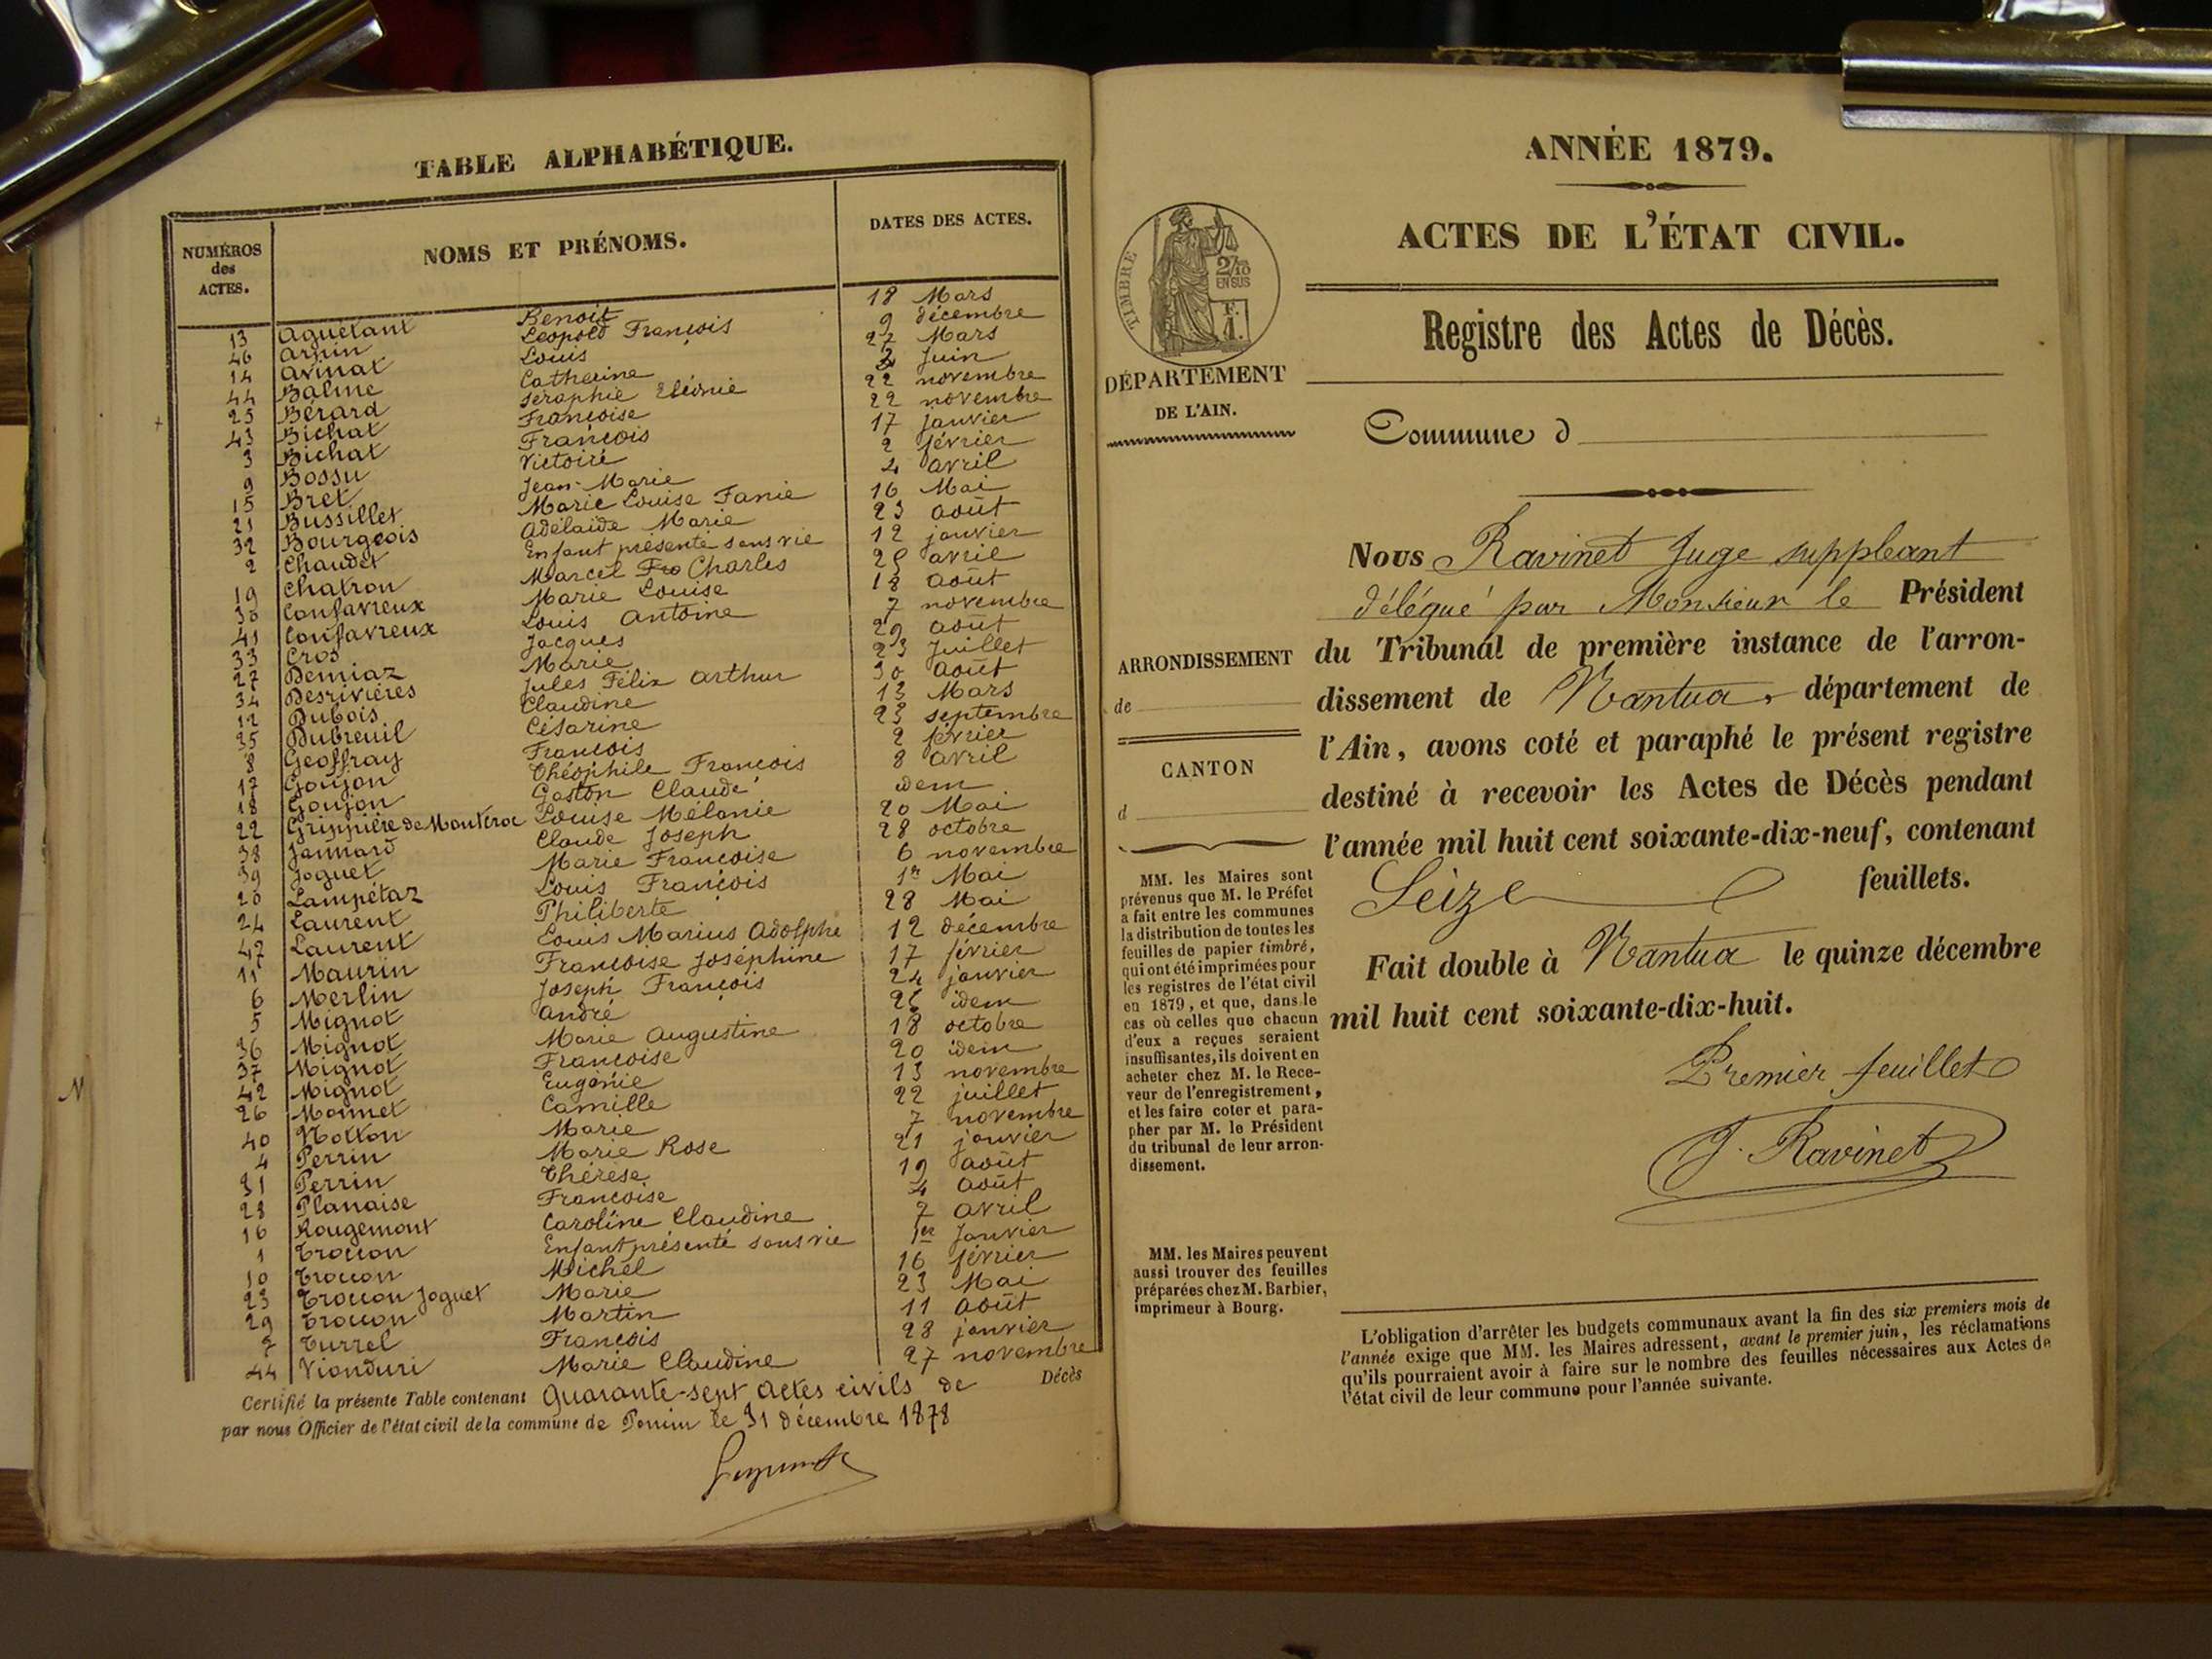 TABLE ALPHABÉTIQUE.
NUMÉROS des ACTES. NOMS ET PRÉNOMS. DATES DES ACTES.
13 Aguetant Benoit 18 Mars
46 Arpin Léopold François 9 décembre
14 Avinat Louis 27 Mars
44 Balme Catherine 2 Juin
25 Bérard Séraphie Eléonie 22 novembre
43 Bichat Françoise 22 novembre
3 Bichat François 17 janvier
9 Bossu Victoire 2 février
15 Bret Jean-Marie 4 avril
21 Bussillet Marie Louise Fanie 16 Mai
32 Bourgeois Adélaïde Marie 23 août
2 Chaudet Enfant présenté sans vie 12 janvier
19 Chatron Marcel Fro Charles 25 avril
30 Confavreux Marie Louise 18 août
41 Confavreux Louis Antoine 7 novembre
33 Cros Jacques 29 août
27 Demiaz Marie 23 Juillet
34 Desrivières Jules Félix Arthur 30 août
12 Dubois Claudine 13 Mars
35 Dubreuil Césarine 23 septembre
8 Geoffray François 2 février
17 Goujon Théophile François 8 avril
18 Goujon Gaston Claude idem
22 Grippière de Montcroc Louise Mélanie 20 Mai
38 Jannard Claude Joseph 28 octobre
39 Joguet Marie Françoise 6 novembre
20 Lampétaz Louis François 1er Mai
24 Laurent Philiberte 28 Mai
47 Laurent Louis Marius Adolphe 12 décembre
11 Maurin Françoise Joséphine 17 février
6 Merlin Joseph François 24 janvier
5 Mignot André 25 idem
36 Mignot Marie Augustine 18 octobre
37 Mignot Françoise 20 idem
42 Mignot Eugénie 13 novembre
26 Monnet Camille 22 juillet
40 Notton Marie 7 novembre
4 Perrin Marie Rose 21 janvier
31 Perrin Thérèse 19 août
28 Planaise Françoise 4 août
16 Rougemont Caroline Claudine 7 avril
1 Trocon Enfant présenté sans vie 1er Janvier
10 Trocon Michel 16 février
23 Trocon Joguet Marie 23 Mai
29 Trocon Martin 11 août
7 Turrel François 28 janvier
44 Vionduri Marie Claudine 27 novembre
Certifié la présente Table contenant Quarante-sept actes civils de Décès
par nous Officier de l'état civil de la commune de Poncin le 31 décembre 1878
N
ANNÉE 1879.
ACTES DE L'ÉTAT CIVIL.
Registre des Actes de Décès.
TIMBRE
2/10 EN SUS
F. 1.
DÉPARTEMENT
DE L'AIN.
Commune d
Nous Ravinet Juge suppleant
délégué par Monsieur le Président
du Tribunal de première instance de l'arron-
dissement de Nantua, département de
l'Ain, avons coté et paraphé le présent registre
destiné à recevoir les Actes de Décès pendant
l'année mil huit cent soixante-dix-neuf, contenant
Seize feuillets.
Fait double à Nantua le quinze décembre
mil huit cent soixante-dix-huit.
Premier feuillet
J. Ravinet
ARRONDISSEMENT
de
CANTON
d
MM. les Maires sont
prévenus que M. le Préfet
a fait entre les communes
la distribution de toutes les
feuilles de papier timbré,
qui ont été imprimées pour
les registres de l'état civil
en 1879, et que, dans le
cas où celles que chacun
d'eux a reçues seraient
insuffisantes, ils doivent en
acheter chez M. le Rece-
veur de l'enregistrement,
et les faire coter et para-
pher par M. le Président
du tribunal de leur arron-
dissement.
MM. les Maires peuvent
aussi trouver des feuilles
préparées chez M. Barbier,
imprimeur à Bourg.
L'obligation d'arrêter les budgets communaux avant la fin des six premiers mois de
l'année exige que MM. les Maires adressent, avant le premier juin, les réclamations
qu'ils pourraient avoir à faire sur le nombre des feuilles nécessaires aux Actes de
l'état civil de leur commune pour l'année suivante.